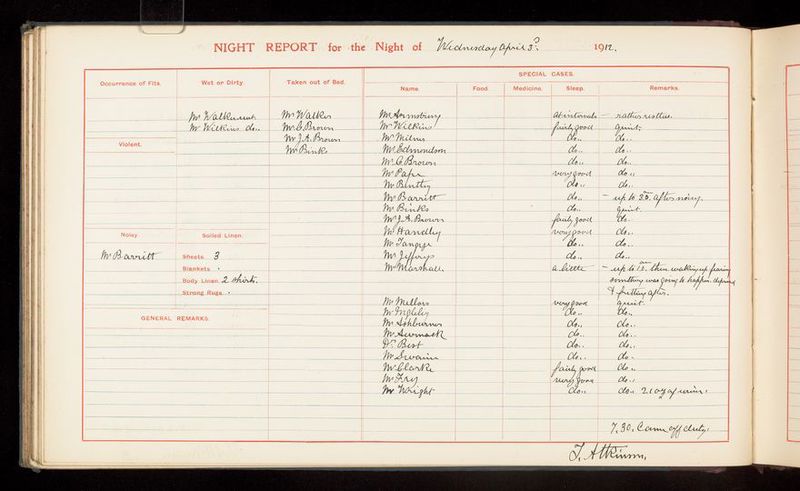 NIGHT REPORT for the Night of Wednesday April 3rd. 1912.
Occurrence of Fits. Wet or Dirty. Taken out of Bed. SPECIAL CASES.
Name. Food. Medicine. Sleep. Remarks.
Mr Walker Mr Walker Mr Armsbury At intervals - rather restless.
Mr Wilkins do.. Mr G. Brown Mr Wilkins fairly good quiet.
Mr J. A. Brown Mr Milner do.. do..
Violent. Mr Binks Mr Edmondson do.. do..
Mr G Brown do.. do..
Mr Pape very good do..
Mr Bentley do.. do..
Mr Barritt do.. - up to after noisy.
Mr Binks do.. quiet.
Mr J. A. Brown fairly good do.
Noisy Soiled Linen. Mr Handley very good do..
Mr do.. do..
Mr Barritt Sheets 3 Mr Jefferys do.. do..
Blankets Mr Marshall. a little - up to then waking up fearing
Body Linen 2 shirts. something was going to happen.
Strong Rugs & after.
Mr Mellors very good quiet.
GENERAL REMARKS. Mr Ingleby do.. do..
Mr Ashburner do.. do..
Mr do.. do..
Dr. Best do.. do..
Mr Swain do.. do..
Mr Clarke fairly good do..
Mr Fry very good do..
Mr Wright do.. do.. 21 oz of urine.
7.30. Came off duty.
T. Atkinson.